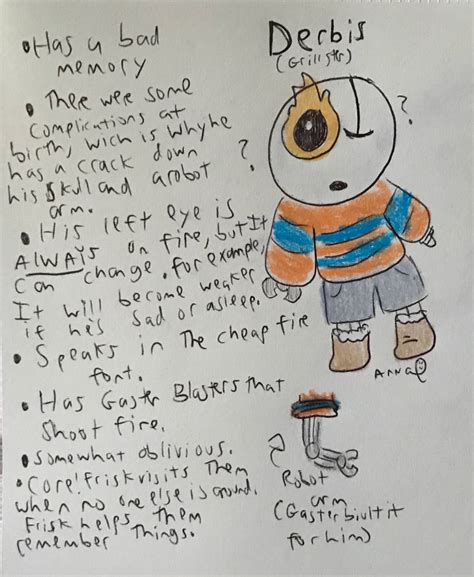 Derbis
(Grillster)
• Has a bad
memory
• There were some
complications at
birth, wich is why he
has a crack down
his skull and a robot
arm.
• His left eye is
ALWAYS on fire, but It
can change. for example,
It will become weaker
if he's sad or asleep.
• Speaks in The cheap fire
font.
• Has Gaster Blasters that
shoot fire.
• somewhat oblivious.
• Core!frisk visits Them
when no one else is around.
Frisk helps them
remember Things.
?
?
ANNA
Robot
arm
(Gaster biult it
for him)